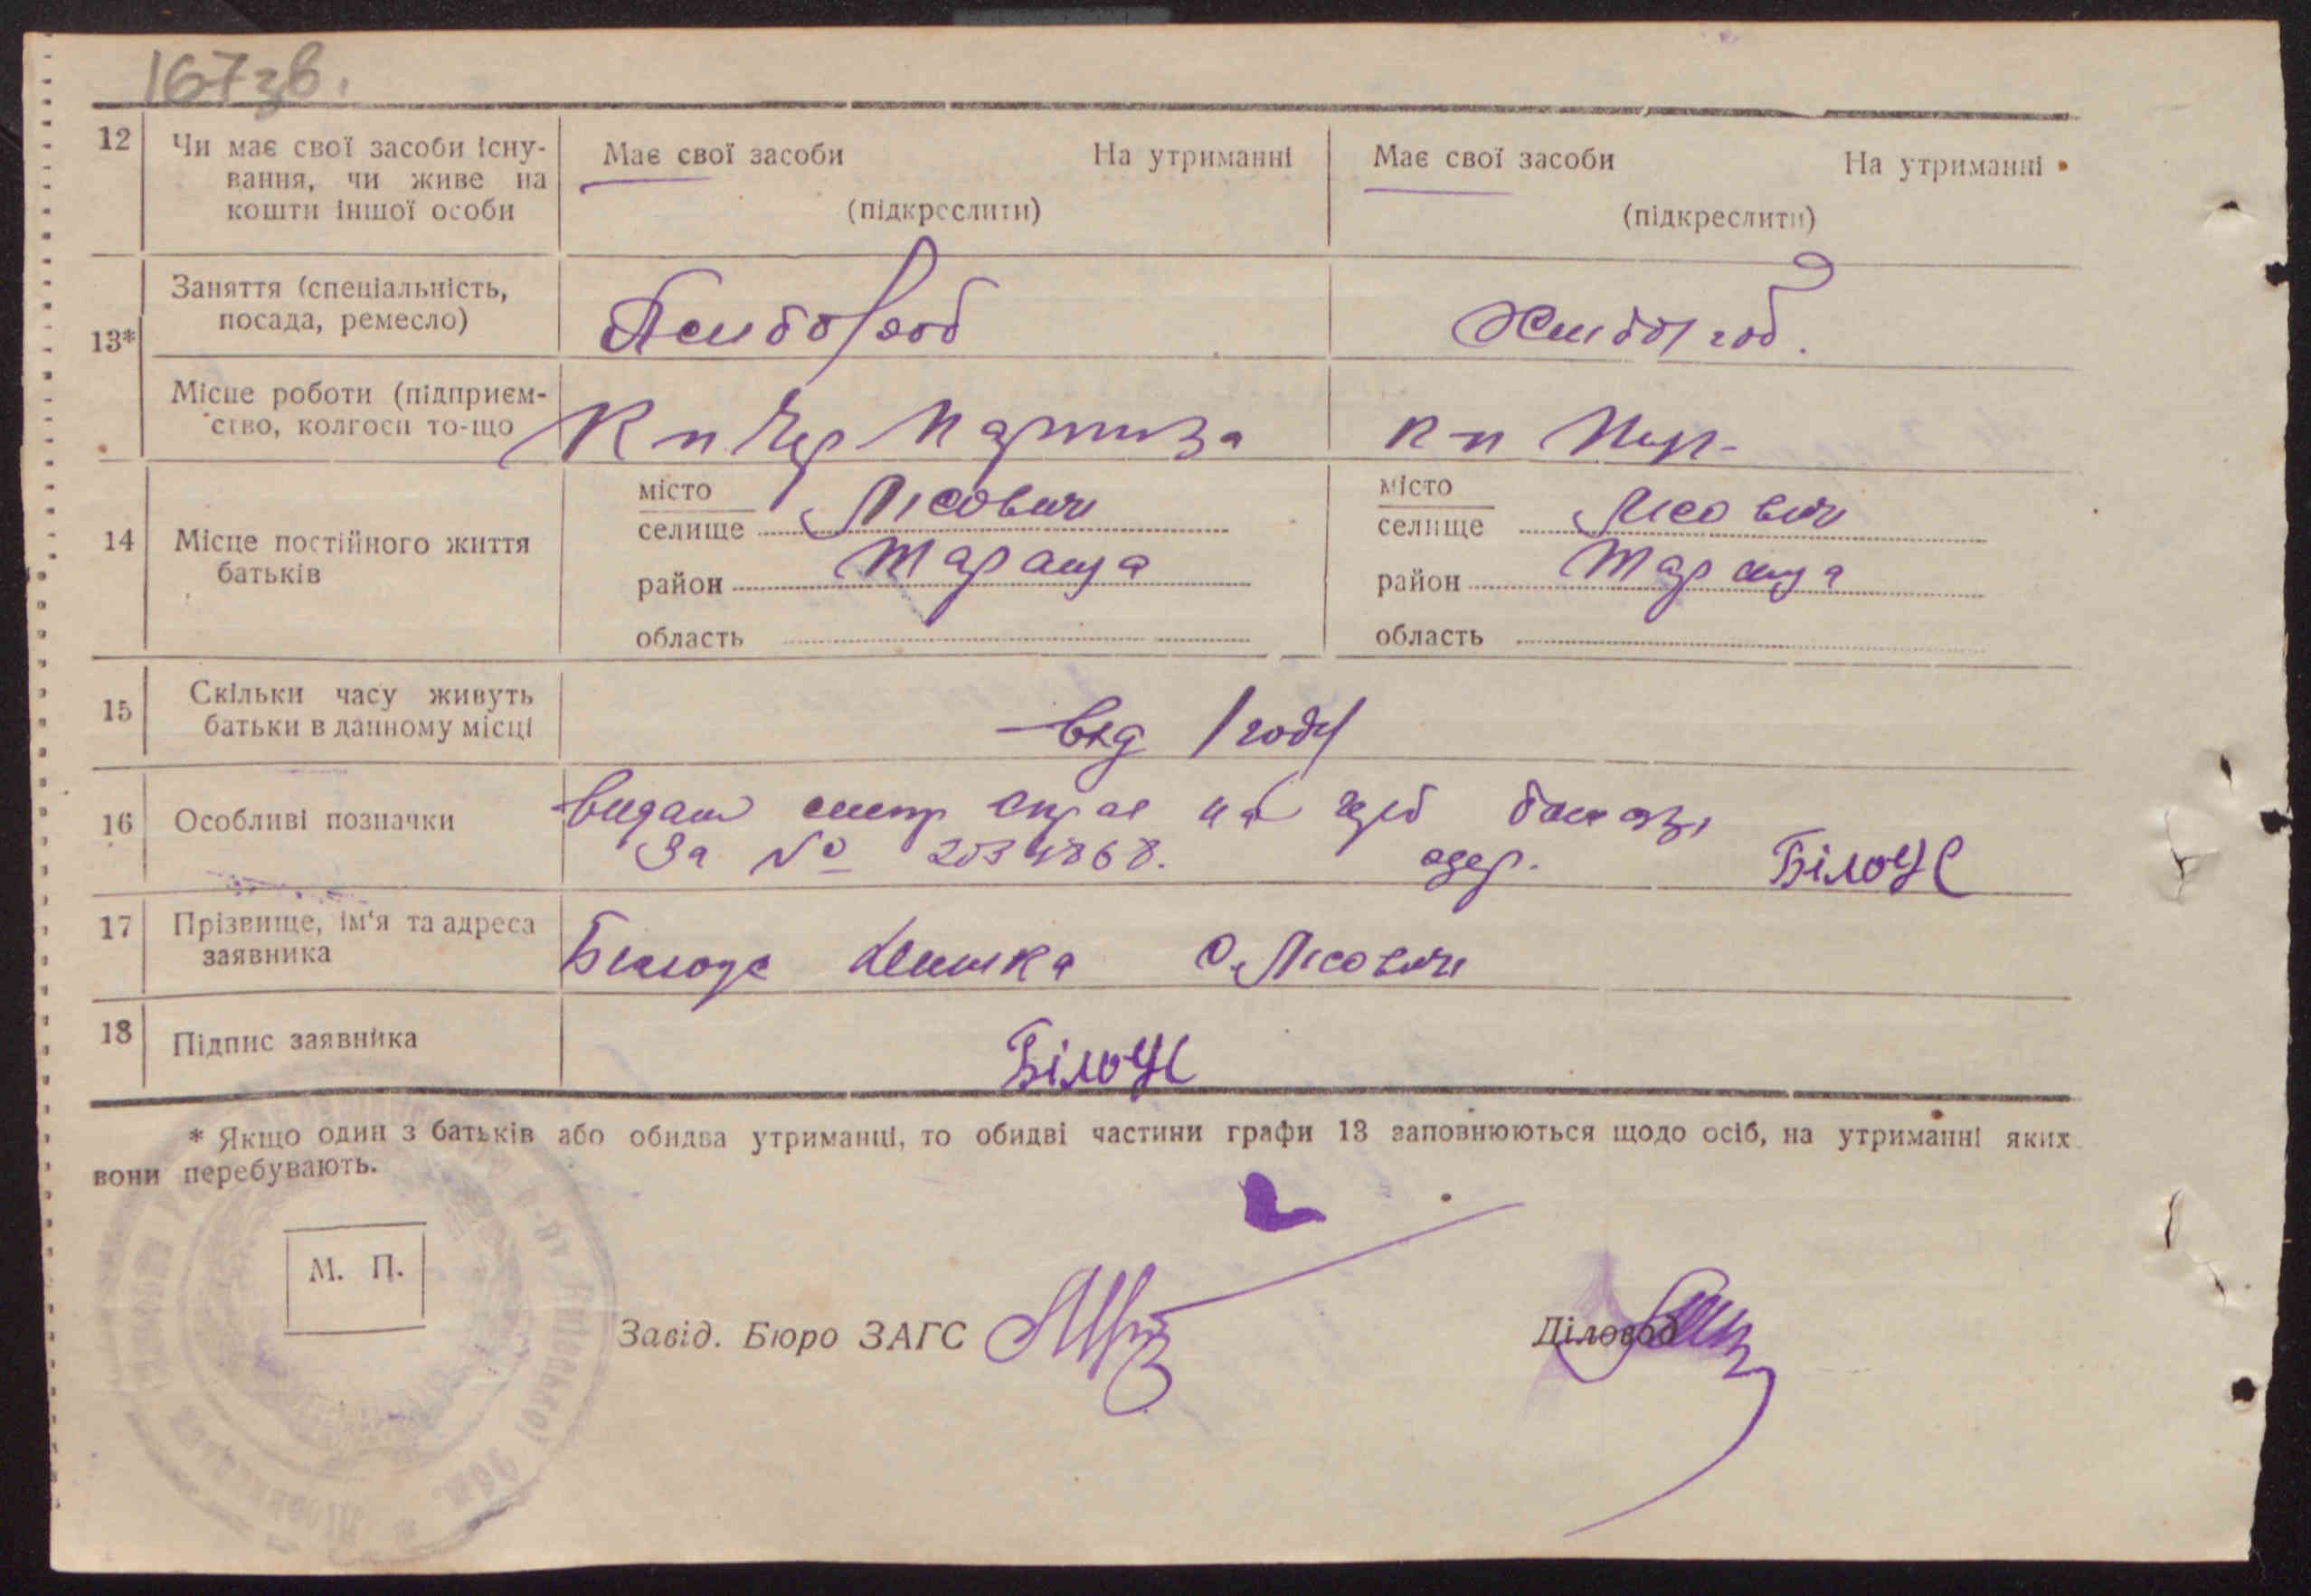 167 зв.
12 Чи має свої засоби існу-
вання, чи живе на
кошти іншої особи
Має свої засоби На утриманні
(підкреслити)
Має свої засоби На утриманні
(підкреслити)
13*
Заняття (спеціальність,
посада, ремесло)
Хлибороб
Хлибороб.
Місце роботи (підприєм-
ство, колгосп то-що
К п Чер Партиза
к п Чер-
14 Місце постійного життя
батьків
місто
селище Лісовичи
район Тараща
область
місто
селище Лісовичи
район Тараща
область
15 Скільки часу живуть
батьки в данному місці
1 году
16 Особливі позначки
на
За № одер. БілоУС
17 Прізвище, ім'я та адреса
заявника
Білоус с. Лісовичи
18 Підпис заявника
БілоУС
* Якщо один з батьків або обидва утриманці, то обидві частини графи 13 заповнюються щодо осіб, на утриманні яких
вони перебувають.
М. П.
Завід. Бюро ЗАГС
Діловод
р-ну Київської Обл.